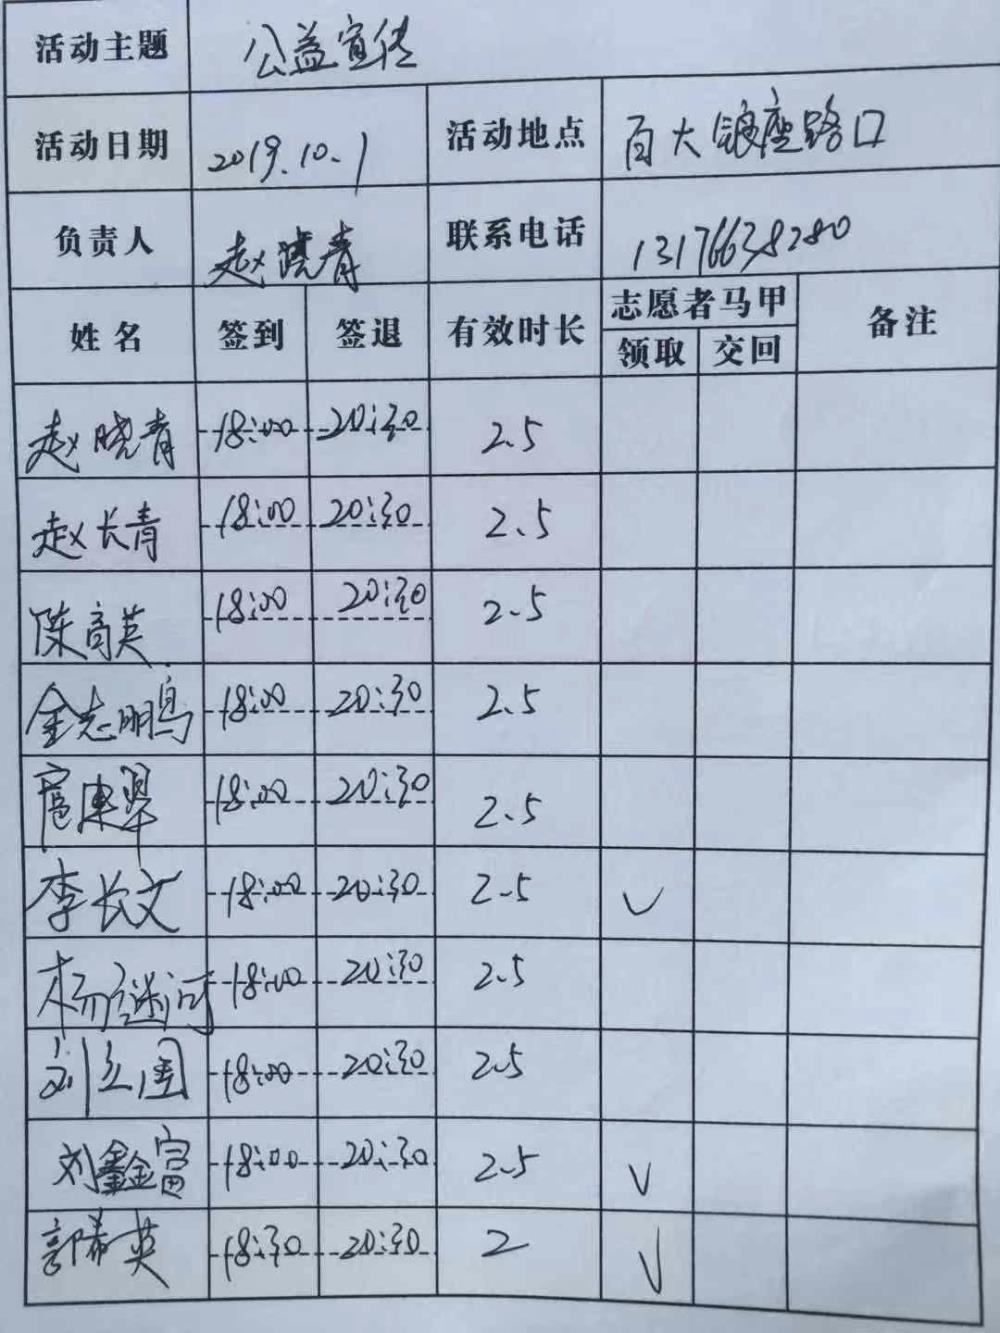 活动主题 公益宣传
活动日期 2019.10.1 活动地点 百大银座路口
负责人 赵晓青 联系电话 13176638280
姓名 签到 签退 有效时长 志愿者马甲 备注
领取 交回
赵晓青 18:00 20:30 2.5
赵长青 18:00 20:30 2.5
陈高英 18:00 20:30 2.5
金志鹏 18:00 20:30 2.5
18:00 20:30 2.5
李长文 18:00 20:30 2.5 ✓
杨河 18:00 20:30 2.5
刘立国 18:00 20:30 2.5
刘鑫富 18:00 20:30 2.5 ✓
郭希英 18:30 20:30 2 ✓